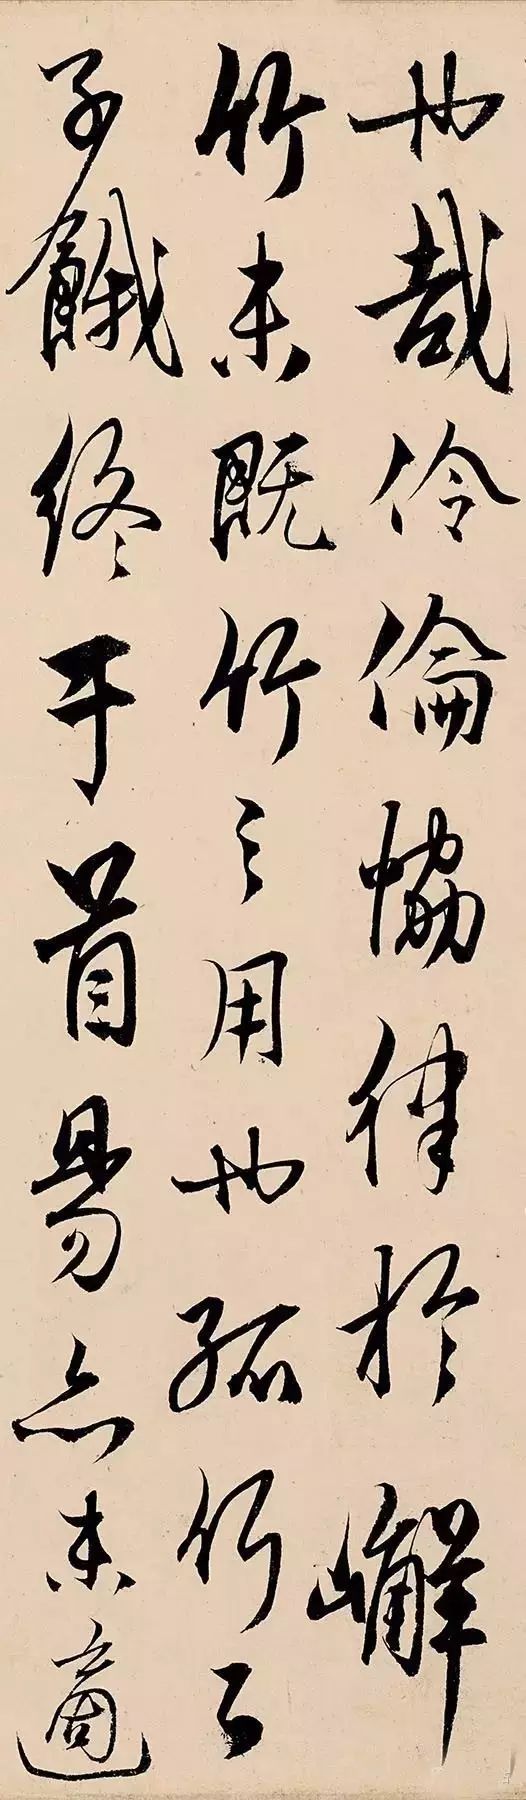 也哉伶倫協律於嶰
竹未既竹之用也孤竹二
子餓終于首昜亦未適